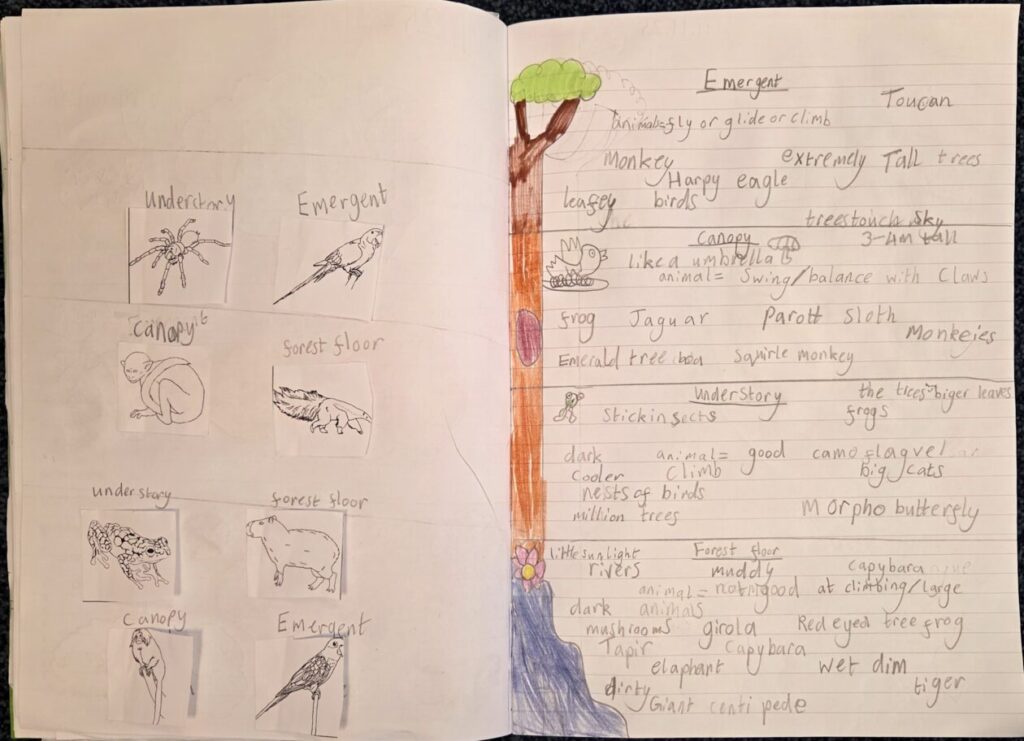 Understory Emergent
Canopy forest floor
understory forest floor
Canopy Emergent
Emergent
Toucan
animals=fly or glide or climb
Monkey extremely Tall trees
Harpy eagle
leafey birds
trees touch sky
Canopy 3-4m tall
like a umbrella
animal= Swing/balance with Claws
frog Jaguar Parott Sloth
Monkejes
Emerald tree boa Squirle monkey
Understory the tices biger leaves
Stick insects frogs
dark animal= good camoflaque
Cooler Climb Big cats
nests of birds
million trees Morpho butterfly
little sunlight Forest floor
rivers muddy capybara
animal= not good at climbing/large
dark animals
mushrooms girola Red eyed tree frog
Tapir Capybara
elaphant wet dim
dirty tiger
Giant centi pede